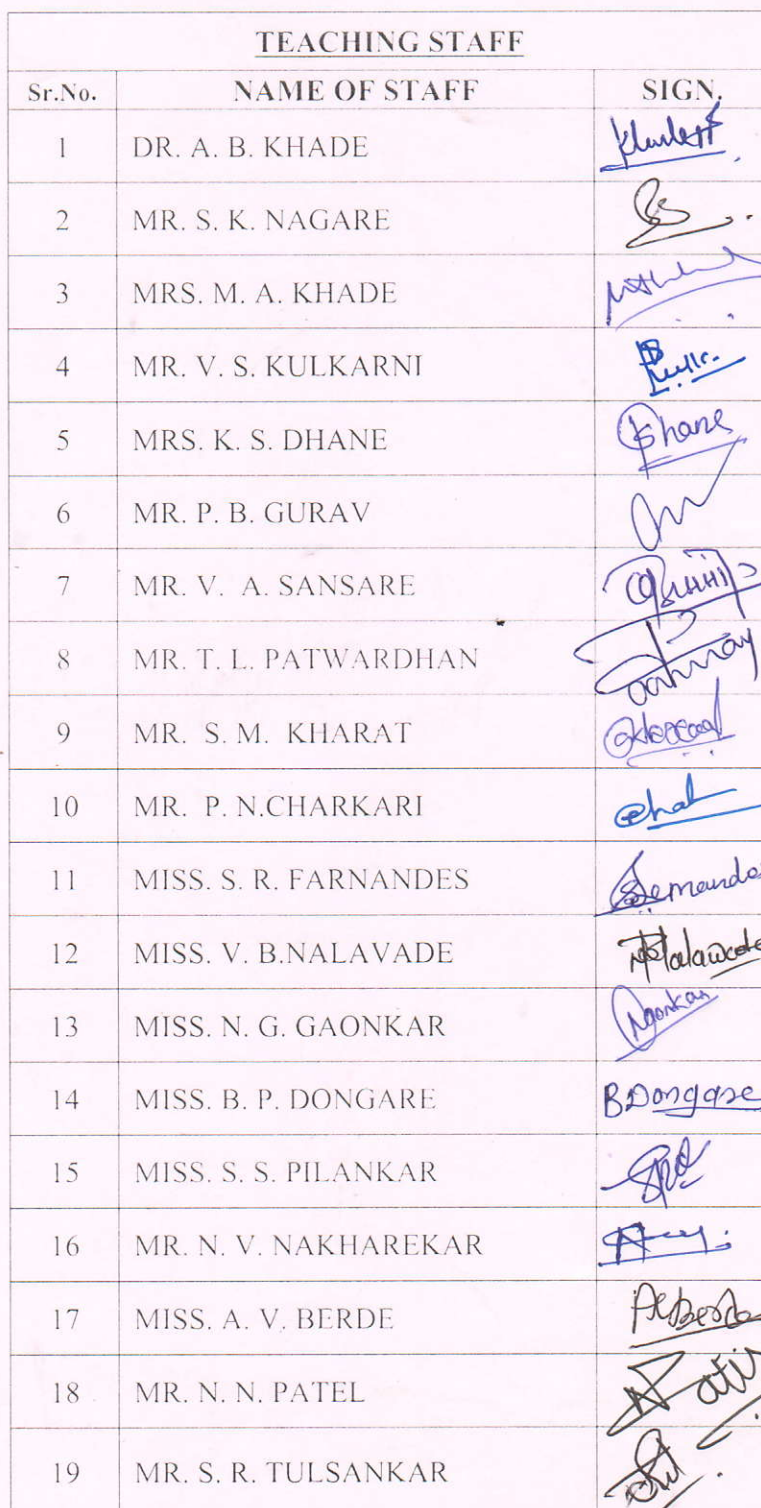 TEACHING STAFF
Sr.No. NAME OF STAFF SIGN.
1 DR. A. B. KHADE
2 MR. S. K. NAGARE
3 MRS. M. A. KHADE
4 MR. V. S. KULKARNI
5 MRS. K. S. DHANE
6 MR. P. B. GURAV
7 MR. V. A. SANSARE
8 MR. T. L. PATWARDHAN
9 MR. S. M. KHARAT
10 MR. P. N.CHARKARI
11 MISS. S. R. FARNANDES
12 MISS. V. B.NALAVADE
13 MISS. N. G. GAONKAR
14 MISS. B. P. DONGARE BDongare
15 MISS. S. S. PILANKAR
16 MR. N. V. NAKHAREKAR
17 MISS. A. V. BERDE
18 MR. N. N. PATEL
19 MR. S. R. TULSANKAR